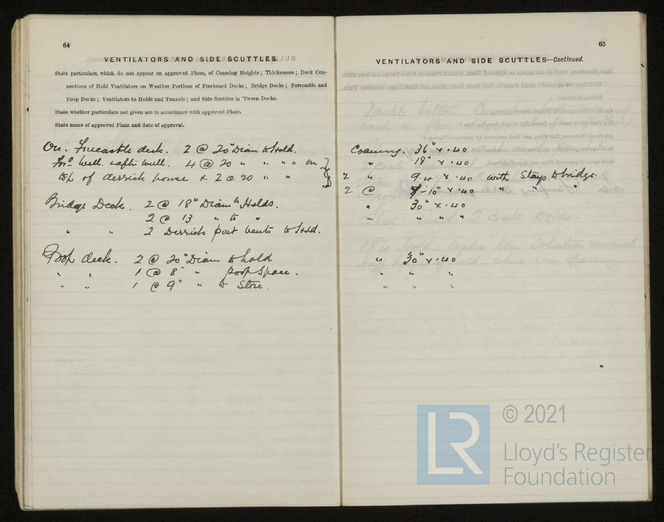 64
VENTILATORS AND SIDE SCUTTLES.
State particulars, which do not appear on approved Plans, of Coaming Heights; Thicknesses; Deck Con-
nections of Hold Ventilators on Weather Portions of Freeboard Decks; Bridge Decks; Forecastle and
Poop Decks; Ventilators to Holds and Tunnels; and Side Scuttles in 'Tween Decks.
State whether particulars not given are in accordance with approved Plans.
State name of approved Plans and date of approval.
On. Forecastle deck. 2 @ 20" Diam to hold.
For'd well. & aft well. 4 @ 20 " " " on
top of derrick house & 2 @ 20 " "
Bridge Deck. 2 @ 18" Diam to Holds.
2 @ 13 " to "
" " 2 Derrick post vents to hold.
Poop deck. 2 @ 20" Diam to hold
" " 1 @ 8" " poop space.
" " 1 @ 9" " to Store.
65
VENTILATORS AND SIDE SCUTTLES—Continued.
Coaming. 36" x .40
" 18" x .40
" x .40 with Stays to bridge.
2 @ x .40 " " "
" 30" x .40
" " " "
" 30" x .40
" " "
" " "
© 2021
LR
Lloyd's Register
Foundation